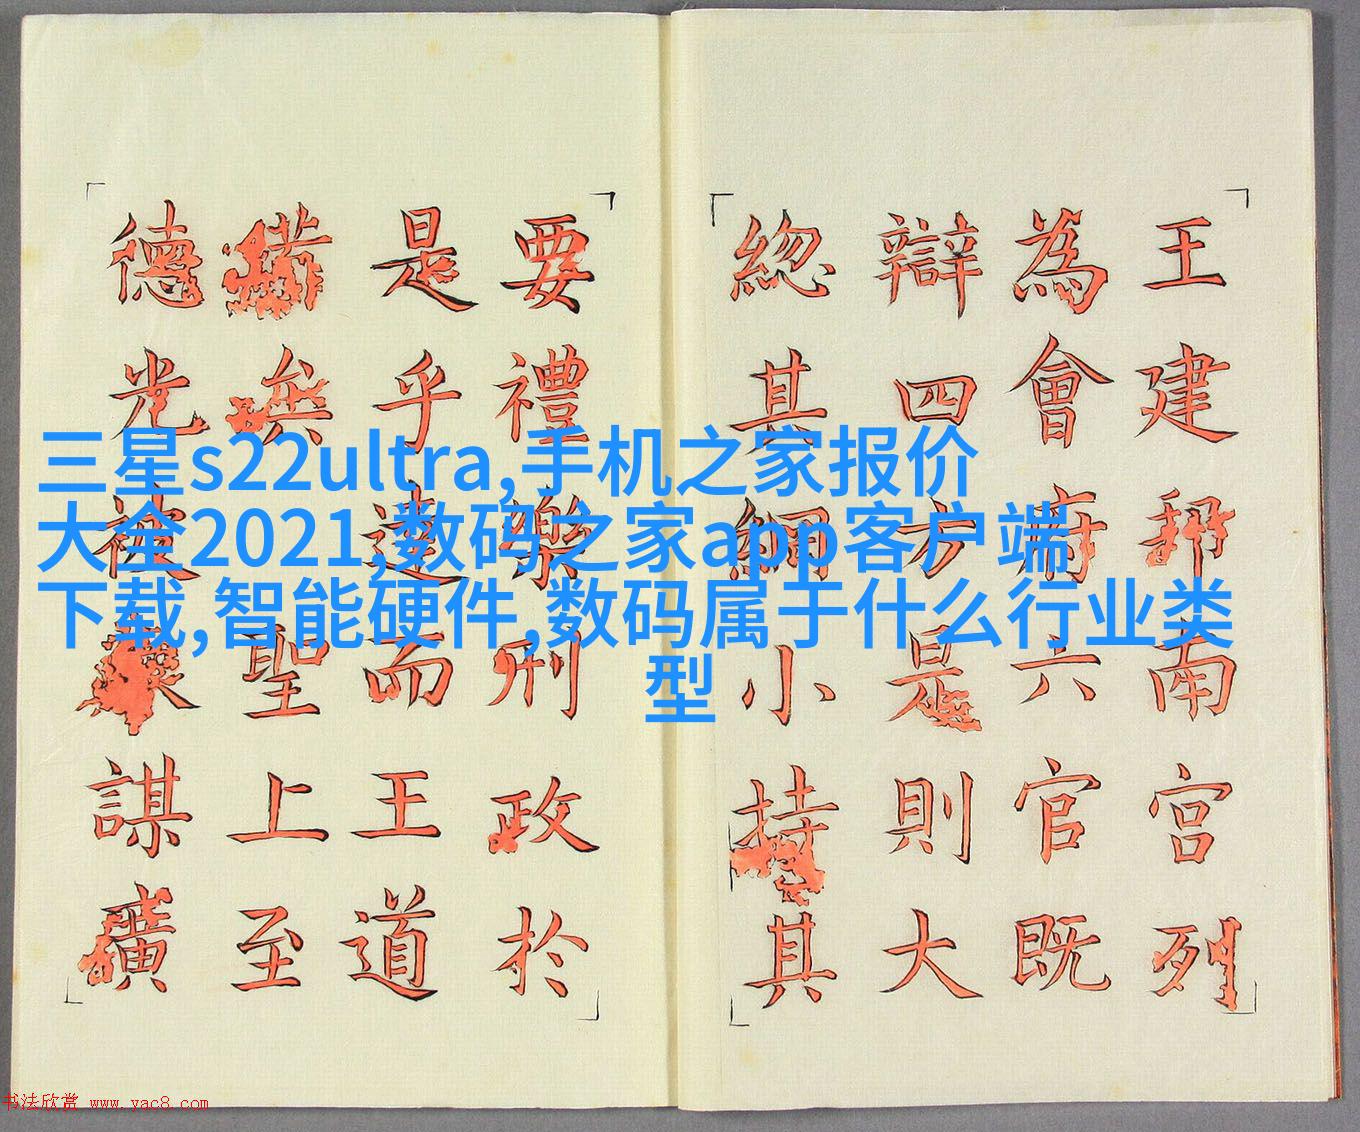 三星s22ultra,手机之家报价
大全2021,数码之家app客户端
下载,智能硬件,数码属于什么行业类
型
王建邦南宫列
為會府六官既
辯四方是則大
緫其綱小持其
要禮樂刑政於
是乎達而王道
聖上至
德光被謀
书法欣赏 www.yac8.com